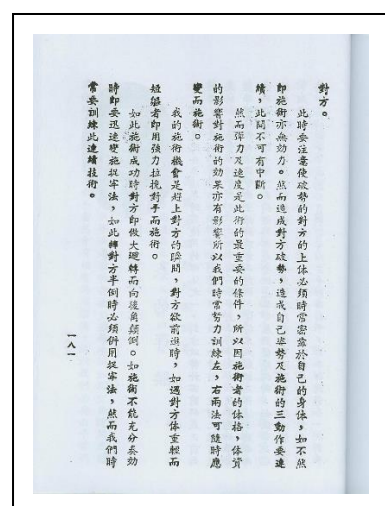 對方。
此時要注意使破勢的對方的上体必須時常密盒於自己的身体，如不然
即施術亦無効力。然而造成對方破勢，造成自己準勢及施術的三動作要連
續，此間不可有中斷。
然而彈力及速度是此術的最重要的條件，所以因施術者的体格，体質
的影響對施術的効果亦有影響所以我們時常努力訓練左，右兩法可隨時應
變而施術。
我的施術機會是趕上對方的瞬間，對方欲前進時，如遇對方体重輕而
短軀者即用強力拉挽對手而施術。
如此施術成功時對方即做大迴轉而向後角顛倒。如施術不能充分奏効
時即要迅速變施捉牢法，如此轉對方半倒時必須併用捉牢法，然而我們時
常要訓練此連續技術。
一八一